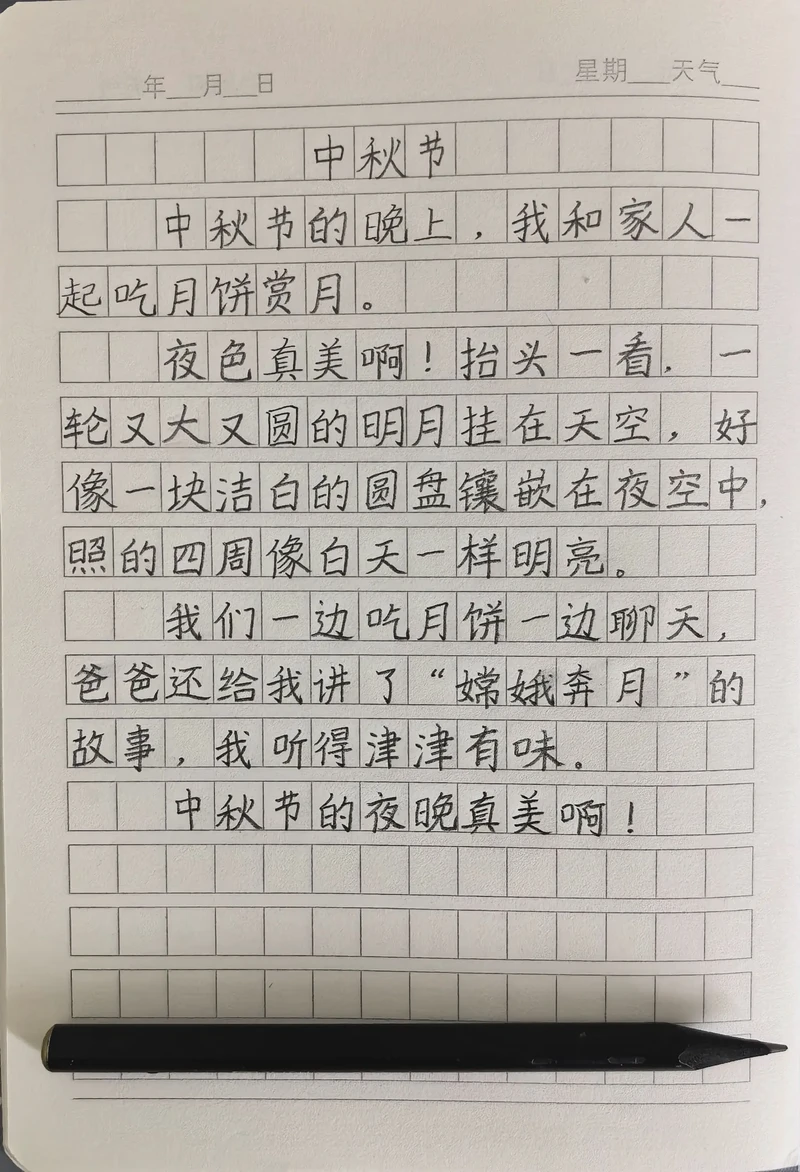 ____年__月__日 星期__天气__
中秋节
中秋节的晚上，我和家人一
起吃月饼赏月。
夜色真美啊！抬头一看，一
轮又大又圆的明月挂在天空，好
像一块洁白的圆盘镶嵌在夜空中，
照的四周像白天一样明亮。
我们一边吃月饼一边聊天，
爸爸还给我讲了“嫦娥奔月”的
故事，我听得津津有味。
中秋节的夜晚真美啊！